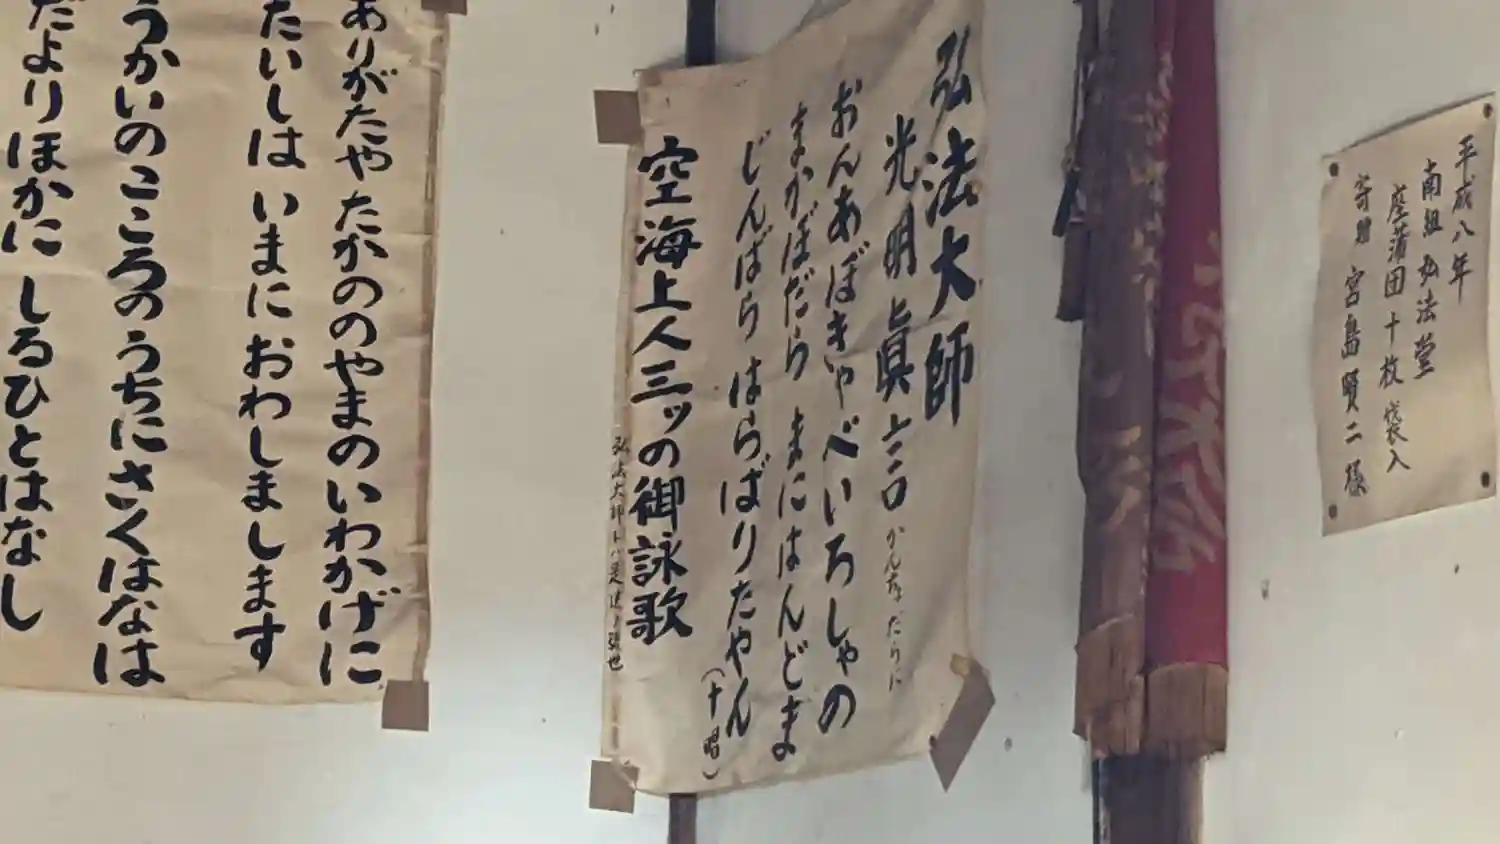 平成八年
南組弘法堂
座蒲団十枚袋入
寄贈 宮島賢二様
弘法大師
光明眞言
おんあぼきゃべいろしゃの
まかぼだら まにはんどま
じんばら はらばりたやん
(十唱)
空海上人三ッの御詠歌
ありがたや たかののやまの いわかげに
たいしは いまに おわしまします
うかいの こころのうちに さくはなは
だより ほかに しるひとはなし